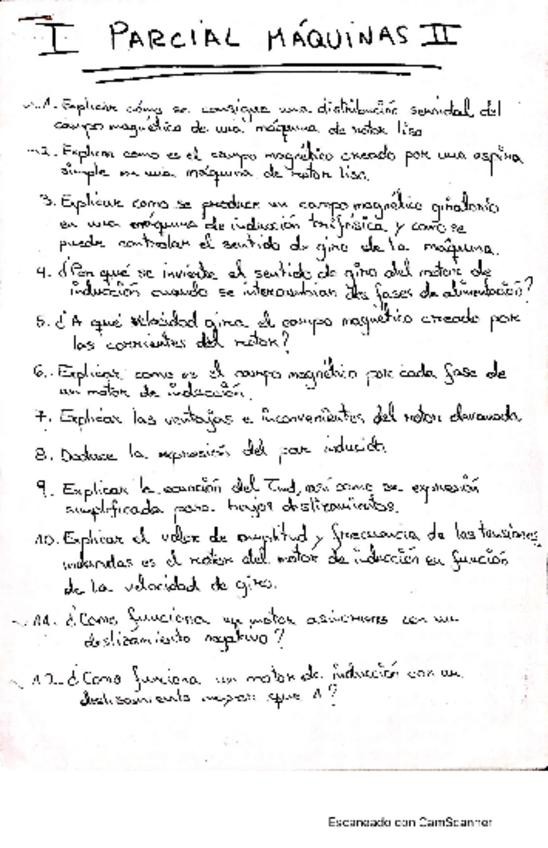 I PARCIAL MÁQUINAS II
1. Explicar cómo se consigue una distribución senoidal del
campo magnético de una máquina de rotor liso
2. Explicar como es el campo magnético creado por una espira
simple en una máquina de rotor liso.
3. Explicar como se produce un campo magnético giratorio
en una máquina de inducción trifásica y como se
puede controlar el sentido de giro de la máquina.
4. ¿Por qué se invierte el sentido de giro del motor de
inducción cuando se intercambian dos fases de alimentación?
5. ¿A qué velocidad gira el campo magnético creado por
las corrientes del rotor?
6. Explicar como es el campo magnético por cada fase de
un motor de inducción.
7. Explicar las ventajas e inconvenientes del rotor devanado
8. Deduce la expresión del par inducido.
9. Explicar la ecuación del Tind, así como se expresión
simplificada para bajos deslizamientos.
10. Explicar el valor de amplitud y frecuencia de las tensiones
inducidas es el rotor del motor de inducción en función
de la velocidad de giro.
11. ¿Como funciona un motor asíncrono con un
deslizamiento negativo?
12. ¿Como funciona un motor de inducción con un
deslizamiento mayor que 1?
Escaneado con CamScanner